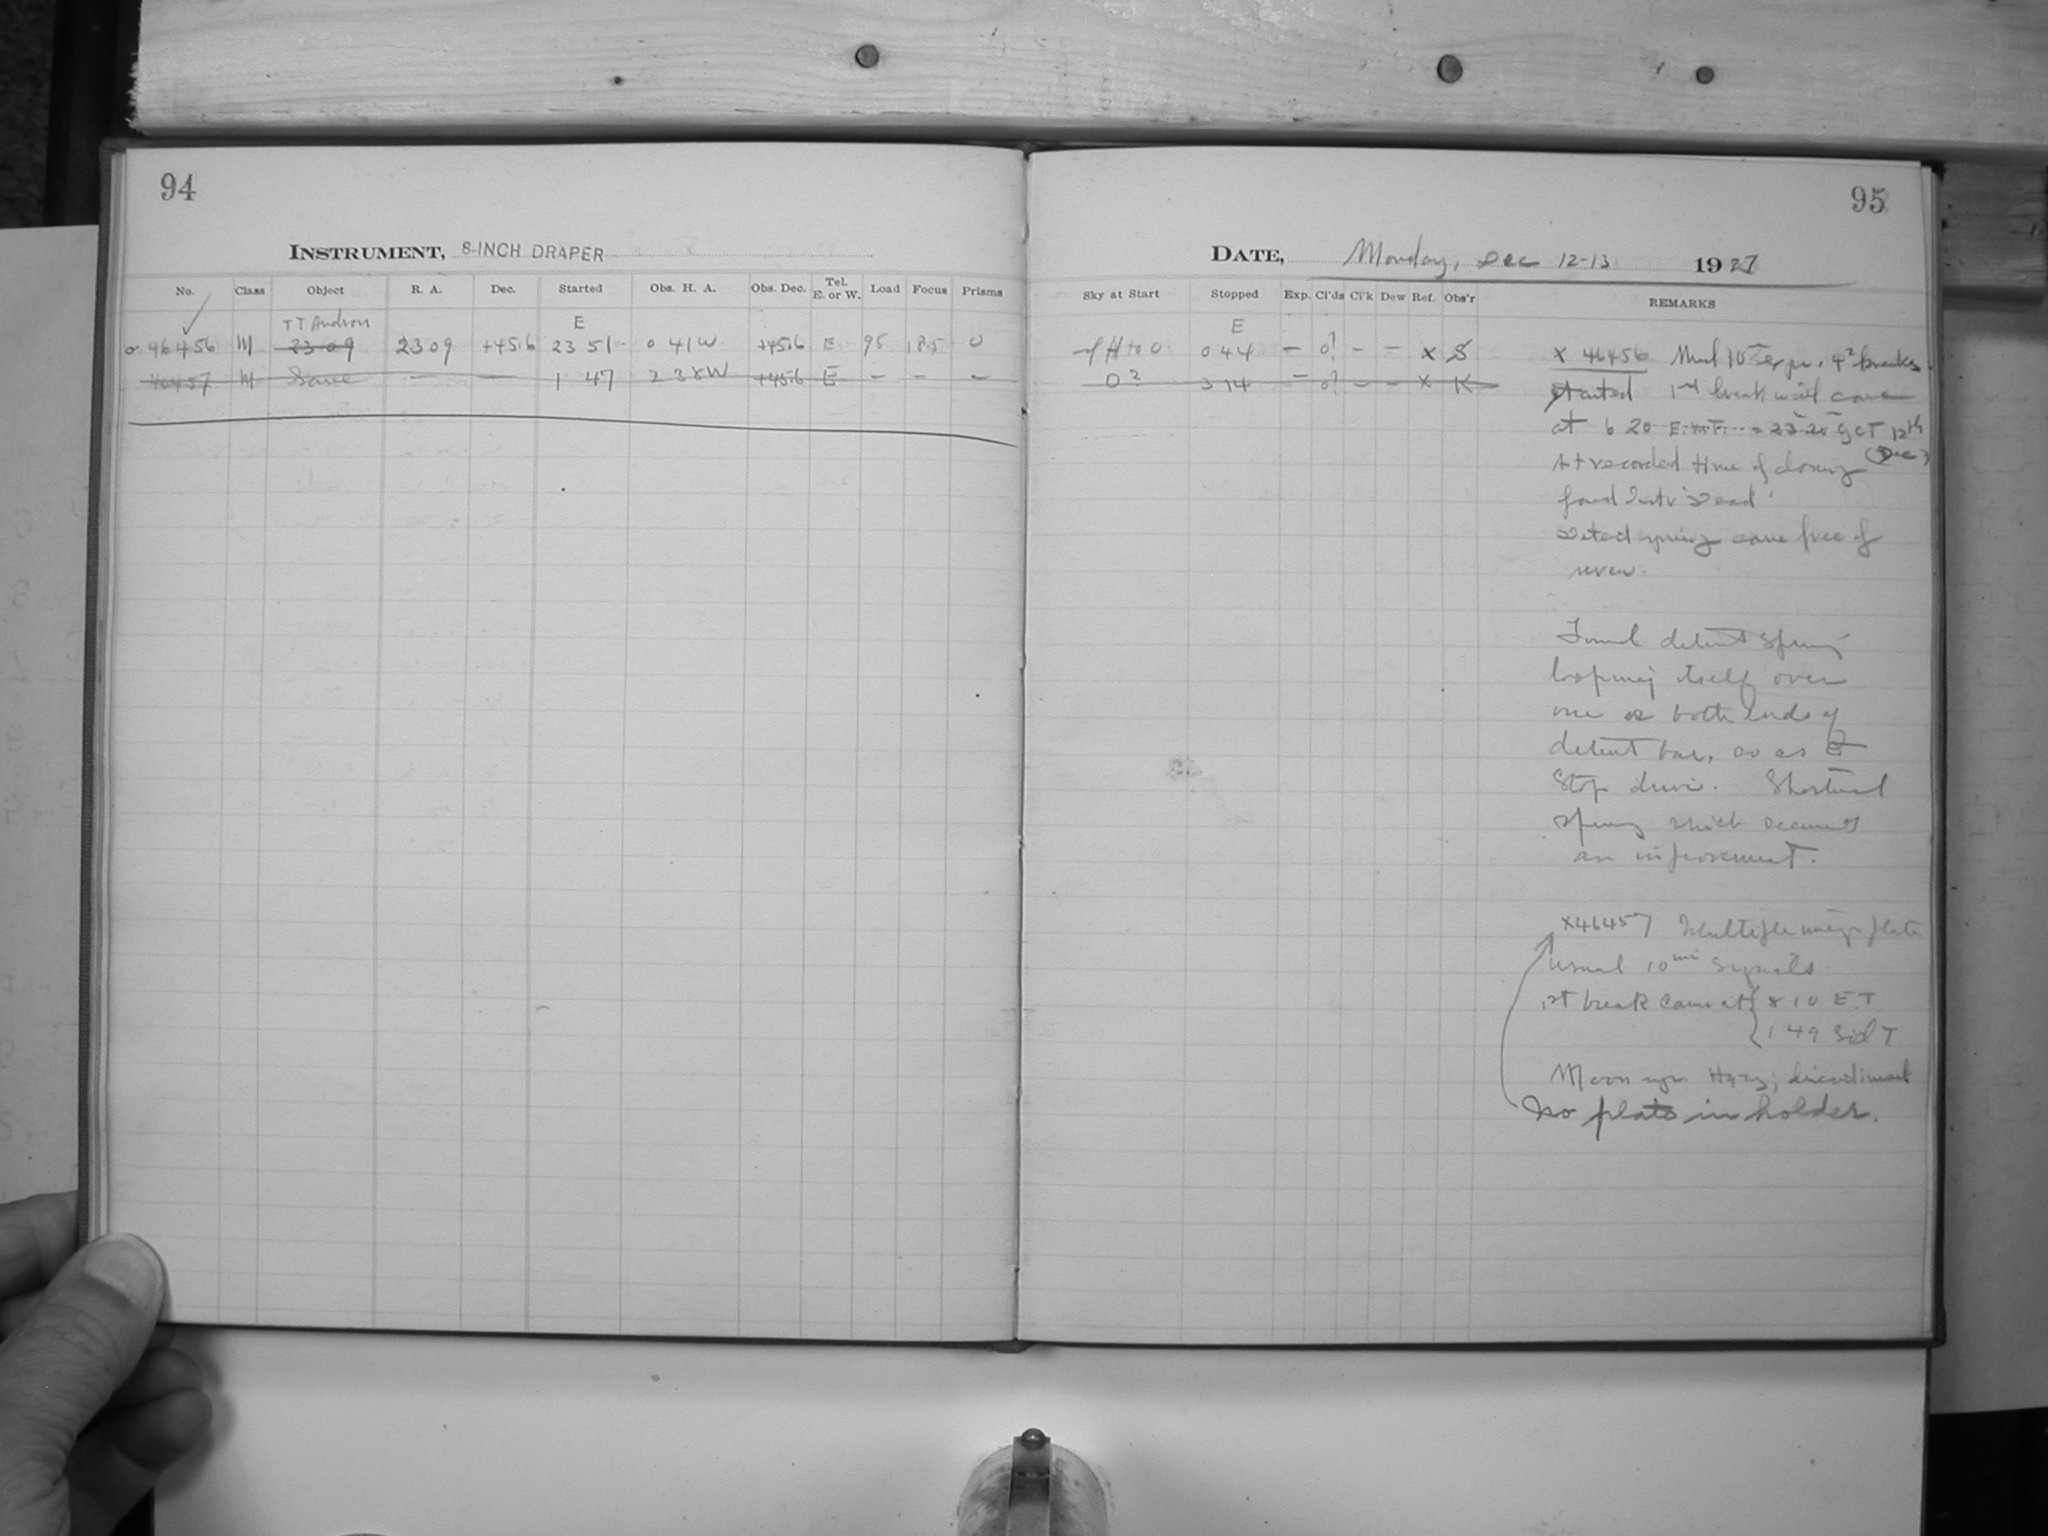 94
INSTRUMENT, 8-INCH DRAPER
No. Class Object R. A. Dec. Started Obs. H. A. Obs. Dec. Tel. E. or W. Load Focus Prisms
TT Androm E
46456 M 2309 2309 +45.6 23 51 0 41W +45.6 E 95 18.5 0
46457 M Same — — 1 47 2 38W +45.6 E — — —
95
DATE, Monday, Dec 12-13 1927
Sky at Start Stopped Exp. Cl'ds Cl'k Dew Ref. Obs'r REMARKS
E
0 44 — 0? — — X S
0² 3 14 — 0? — — X K
X 46456 Mul 10 expr. breaks
started 1st break will come
at 6 20 E.M.T. = 23 20 GCT 12th
(Dec)
At recorded time of closing
found Instr 'Dead'
spring came free of
screw.
Found detent spring
looping itself over
one or both ends of
detent bar, so as to
Stop drive. Shortened
spring which seems
an improvement.
X46457 Multiple image plate
usual 10 min signals
1st break came at 8 10 E.T
1 49 Sid T
Moon up. Hazy; discontinued
No plate in holder.